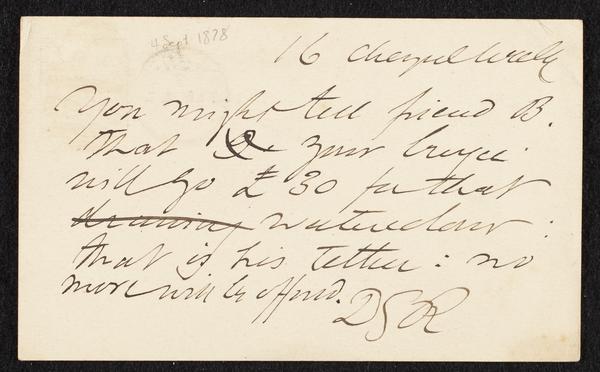 4 Sept 1878
16 Cheyne Walk
You might tell friend B.
that your buyer
will go £30 for that
drawing watercolour :
that is his tether : no
more will be offered.
DGR